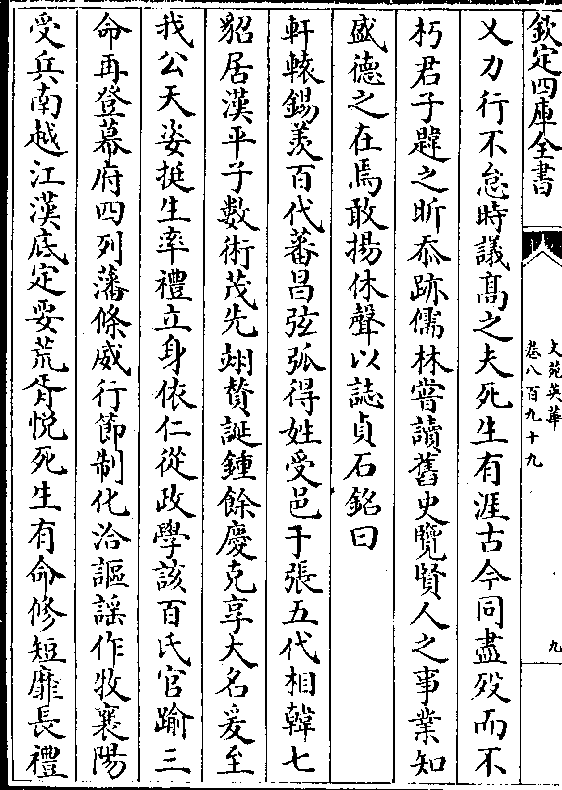 欽定四庫全書
文苑英華
卷八百九十九
九
乂力行不怠時議髙之夫死生有涯古今同盡殁而不
朽君子韙之昕忝跡儒林嘗讀舊史覽賢人之事業知
盛德之在焉敢揚休聲以誌貞石銘曰
軒轅錫羨百代蕃昌弦弧得姓受邑于張五代相韓七
貂居漢平子數術茂先翊贊誕鍾餘慶克享大名爰至
我公天姿挺生率禮立身依仁從政學該百氏官踰三
命再登幕府四列藩條威行節制化洽謳謡作牧襄陽
受兵南越江漢底定要荒胥悦死生有命修短靡長禮